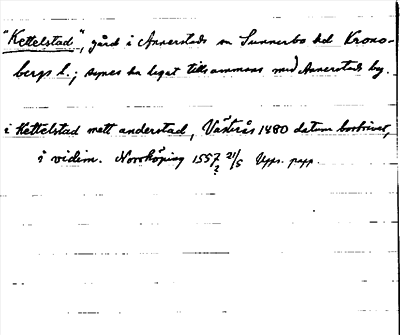 "Kettelstad", gård i Annerstads sn Sunnerbo hd Krono-
bergs l.; synes ha legat tillsammans med Annerstads by.
i Kettelstad mett anderstad, Västerås 1480 datum bortrivet,
i vidim. Norrköping 1557 21/5 Upps. papp.
?